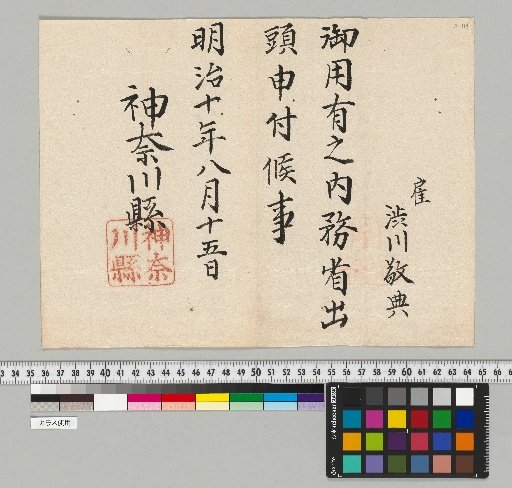 雇
渋川敬典
御用有之内務省出
頭申付候事
明治十年八月十五日
神奈川縣
神奈
川縣
3 34 35 36 37 38 39 40 41 42 43 44 45 46 47 48 49 50 51 52 53 54 55 56 57 58 59 60 61 62 63 64 65 66 6
ガラス使用